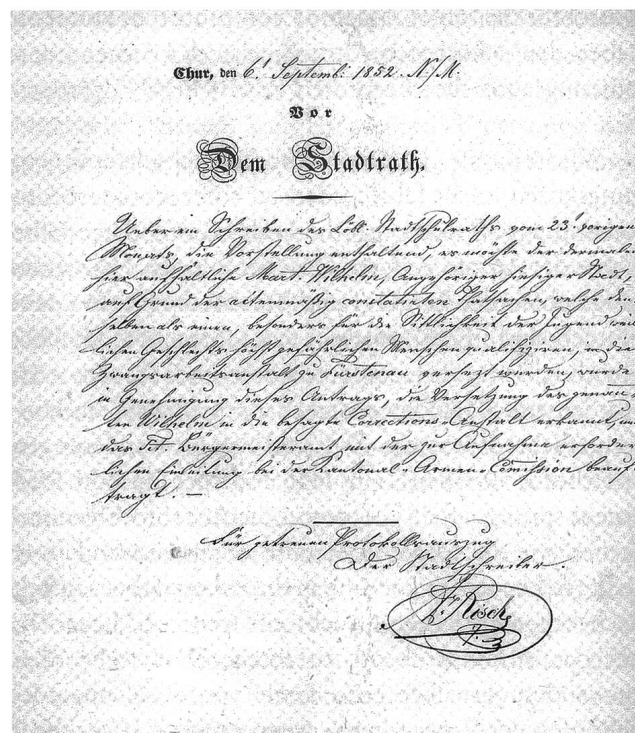 Chur, den 6t Septemb: 1852. N/M.
Vor
Dem Stadtrath.
Ueber ein Schreiben des Löbl. Stadtschulraths vom 23t vorigen
Monats, die Vorstellung enthaltend, es möchte der dermalen
hier aufhältliche Mart. Wilhelm, Angehöriger hiesiger Stadt,
auf Grund der actenmäßig constatirten Thatsachen, welche den
selben als einen, besonders für die Sittlichkeit der Jugend weib
lichen Geschlechts höchst gefährlichen Menschen qualifiziren, in die
Zwangsarbeitsanstalt zu Fürstenau versezt werden, wurde
in Genehmigung dieses Antrags, die Versetzung des genan
ten Wilhelm in die besagte Corrections-Anstalt erkannt, u
das Tit. Bürgermeisteramt mit der zur Aufnahme erforder
lichen Einleitung bei der Kantonal-Armen-Comission beauf
tragt. —
Für getreuen Protokollsauszug
Der Stadtschreiber.
Risch